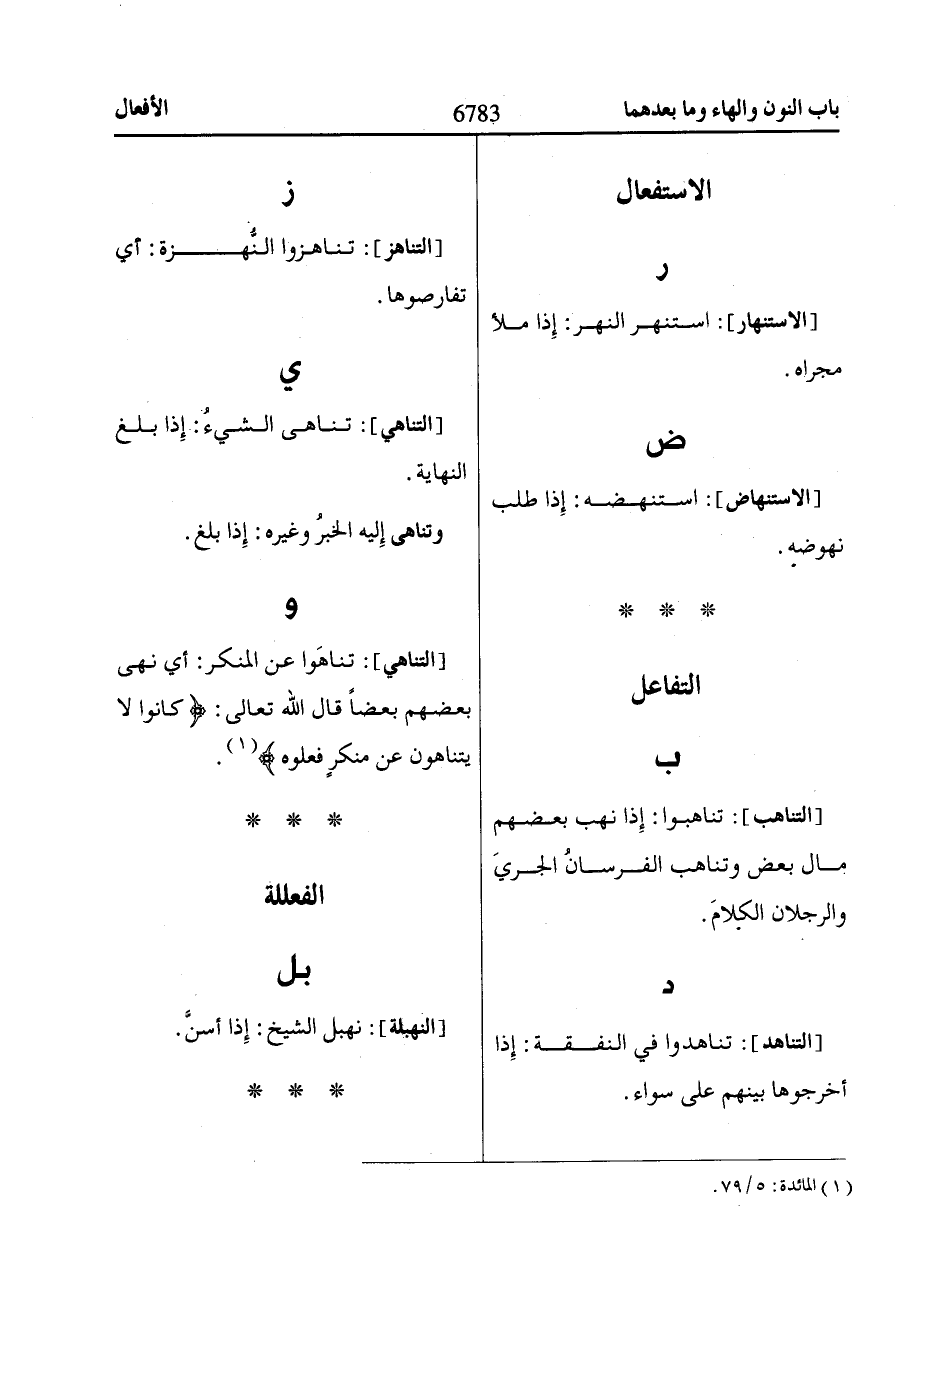 باب النون والهاء وما بعدهما
6783
الأفعال
الاستفعال
ر
[الاستنهار]: استنهر النهر: إذا ملأ
مجراه.
ض
[الاستنهاض]: استنهضه: إذا طلب
نهوضه.
* * *
التفاعل
ب
[التناهب]: تناهبوا: إذا نهب بعضهم
مال بعض وتناهب الفرسانُ الجريَ
والرجلان الكلامَ.
د
[التناهد]: تناهدوا في النفقة: إذا
أخرجوها بينهم على سواء.
ز
[التناهز]: تناهزوا النُّهزة: أي
تفارصوها.
ي
[التناهي]: تناهى الشيءُ: إذا بلغ
النهاية.
وتناهى إليه الخبرُ وغيره: إذا بلغ.
و
[التناهي]: تناهَوا عن المنكر: أي نهى
بعضهم بعضاً قال الله تعالى: ﴿كانوا لا
يتناهون عن منكرٍ فعلوه﴾(١).
* * *
الفعللة
بل
[النهبلة]: نهبل الشيخ: إذا أسنَّ.
* * *
(١) المائدة: ٥/٧٩.